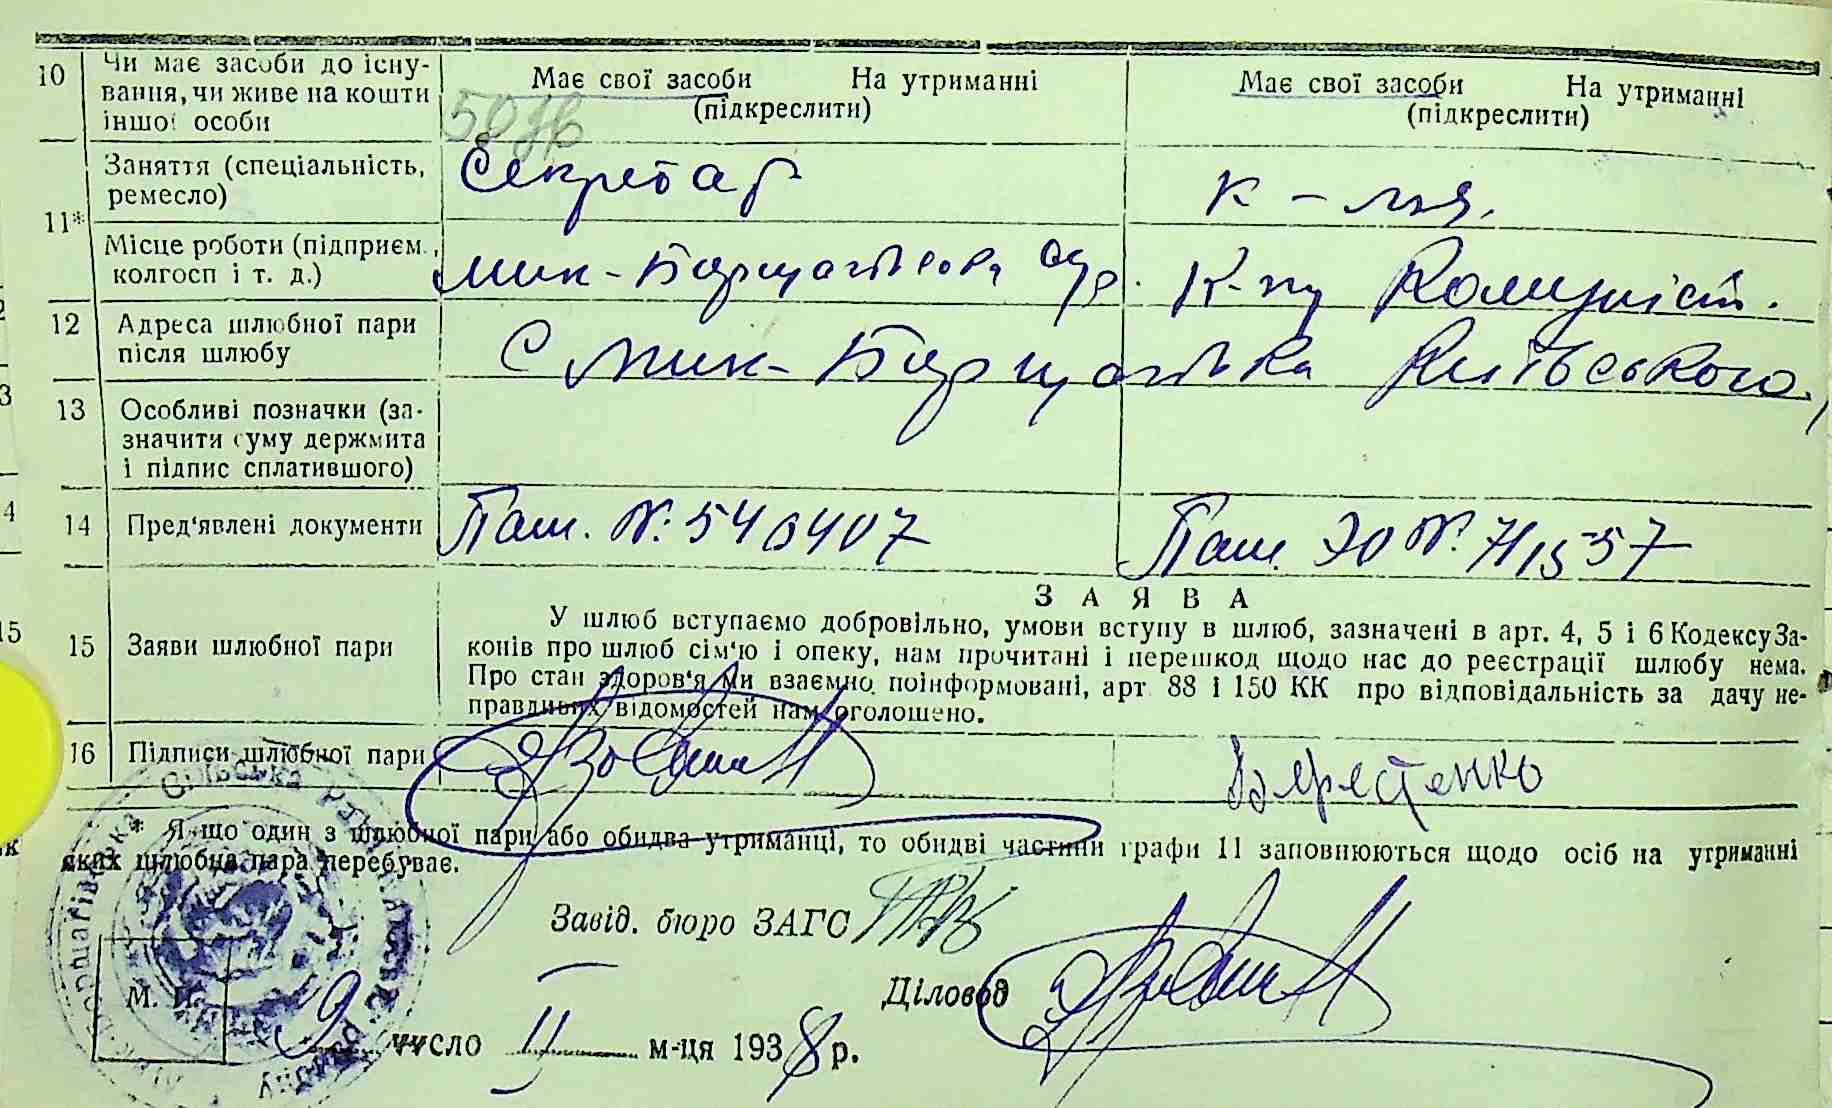 10 Чи має засоби до існу-
вання, чи живе на кошти
іншої особи
Має свої засоби На утриманні
(підкреслити)
Має свої засоби На утриманні
(підкреслити)
11*
Заняття (спеціальність,
ремесло)
Секретар
к-ля.
Місце роботи (підприєм.,
колгосп і т. д.)
Мик-Борщагівська с/р.
К-п Комуніст.
12 Адреса шлюбної пари
після шлюбу
С Мик-Борщагівка Київського,
13 Особливі позначки (за-
значити суму держмита
і підпис сплатившого)
14 Пред'явлені документи
Паш. №. 546407
Паш. ЭО №. 711557
15 Заяви шлюбної пари
ЗАЯВА
У шлюб вступаємо добровільно, умови вступу в шлюб, зазначені в арт. 4, 5 і 6 Кодексу За-
конів про шлюб сім'ю і опеку, нам прочитані і перешкод щодо нас до реєстрації шлюбу нема.
Про стан здоров'я ми взаємно поінформовані, арт 88 і 150 КК про відповідальність за дачу не-
правдивих відомостей нам оголошено.
16 Підписи шлюбної пари
Берестенко
* Якщо один з шлюбної пари або обидва утриманці, то обидві частини графи 11 заповнюються щодо осіб на утриманні
яких шлюбна пара перебуває.
Завід. бюро ЗАГС
Діловод
М. П.
9 число II м-ця 1938 р.